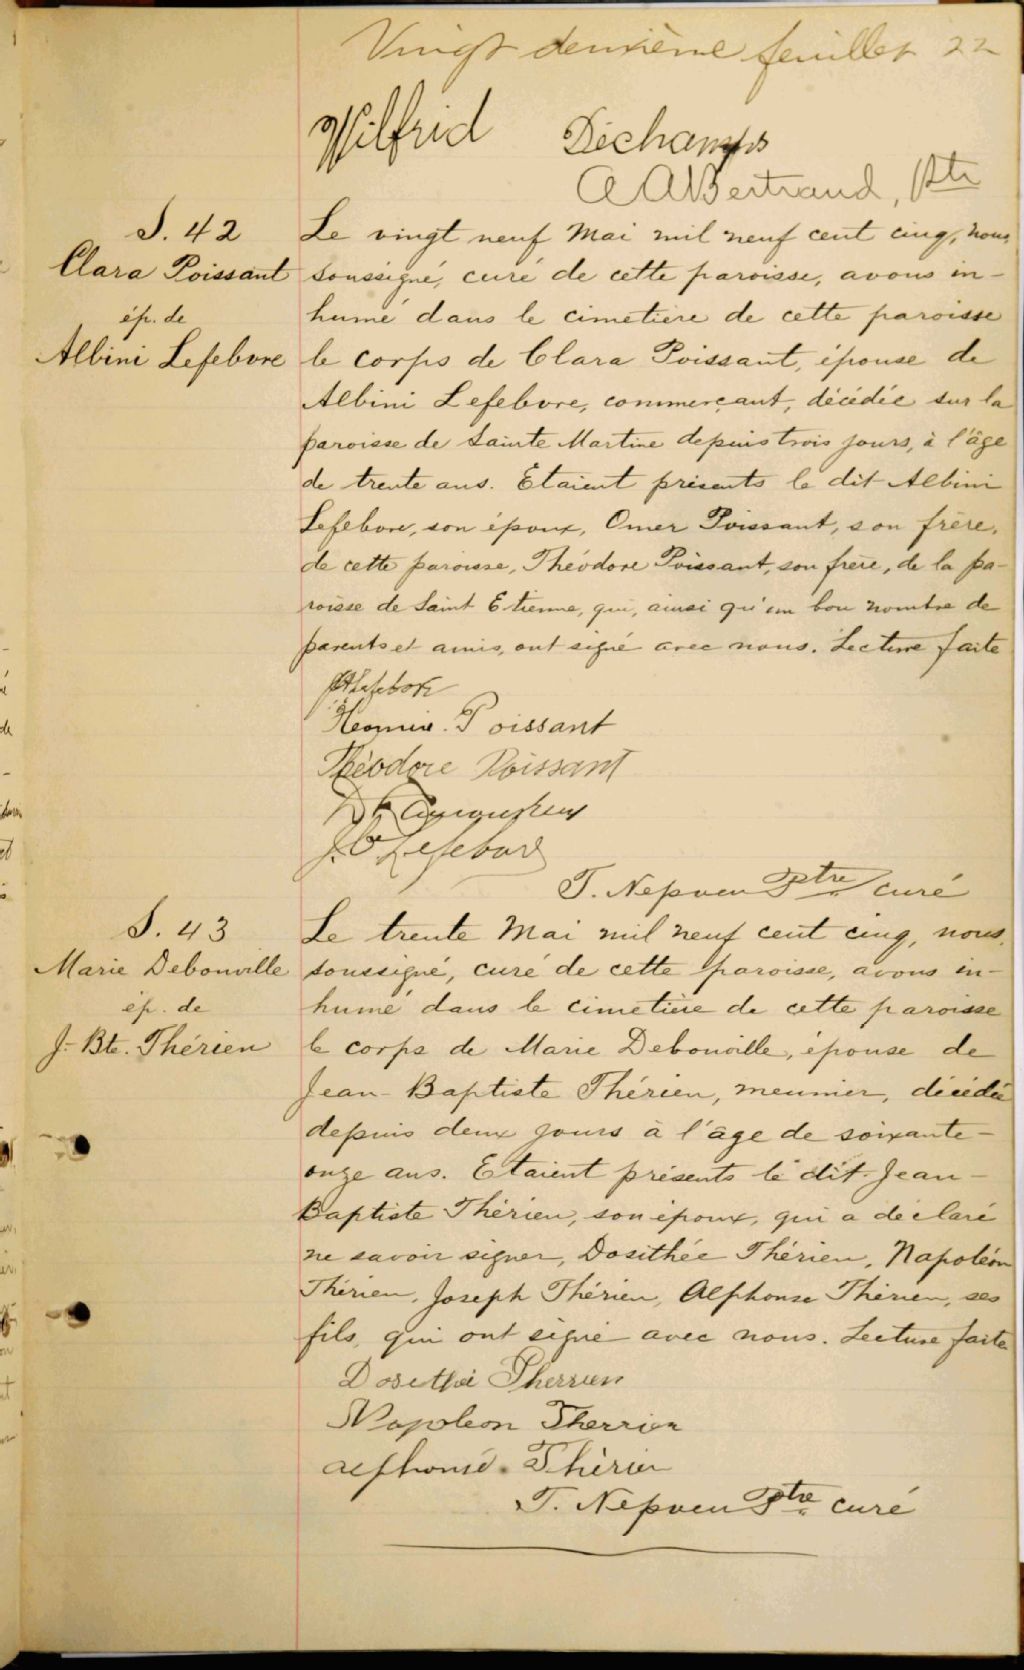 Vingt deuxième feuillet 22
Wilfrid Dechamps
A A Bertrand, Ptr
S. 42
Clara Poissant
ép. de
Albini Lefebvre
Le vingt neuf Mai mil neuf cent cinq, nous
soussigné, curé de cette paroisse, avons in-
humé dans le cimetière de cette paroisse
le corps de Clara Poissant, épouse de
Albini Lefebvre, commerçant, décédée sur la
paroisse de Sainte Martine depuis trois jours, à l'âge
de trente ans. Etaient présents le dit Albini
Lefebvre, son époux, Omer Poissant, son frère,
de cette paroisse, Théodore Poissant, son frère, de la pa-
roisse de Saint Etienne, qui, ainsi qu'un bon nombre de
parents et amis, ont signé avec nous. Lecture faite
Lefebvre
Poissant
Théodore Poissant
Lefebvre
T. Nepveu Ptre curé
S. 43
Marie Debonville
ép. de
J. Bte. Thérien
Le trente Mai mil neuf cent cinq, nous,
soussigné, curé de cette paroisse, avons in-
humé dans le cimetière de cette paroisse
le corps de Marie Debonville, épouse de
Jean-Baptiste Thérien, meunier, décédée
depuis deux jours à l'âge de soixante-
onze ans. Etaient présents le dit Jean-
Baptiste Thérien, son époux, qui a déclaré
ne savoir signer, Dosithée Thérien, Napoléon
Thérien, Joseph Thérien, Alphonse Thérien, ses
fils, qui ont signé avec nous. Lecture faite
Dosithé Therrien
Napoleon Therrien
alphonse Thérien
T. Nepveu Ptre curé